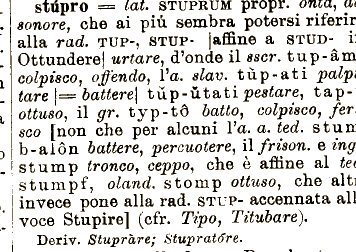 stúpro = lat. STUPRUM propr. onta, d
sonore, che ai piú sembra potersi riferir
alla rad. TUP-, STUP- |affine a STUD- i
Ottundere| urtare, d'onde il sscr. tup-âm
colpisco, offendo, l'a. slav. tŭp-ati palp
tare |= battere| tŭp-ŭtati pestare, tap-
ottuso, il gr. typ-tô batto, colpisco, fer
sco [non che per alcuni l'a. a. ted. stum
b-alôn battere, percuotere, il frison. e ing
stump tronco, ceppo, che è affine al te
stumpf, oland. stomp ottuso, che altr
invece pone alla rad. STUP- accennata al
voce Stupire] (cfr. Tipo, Titubare).
Deriv. Stupràre; Stupratóre.